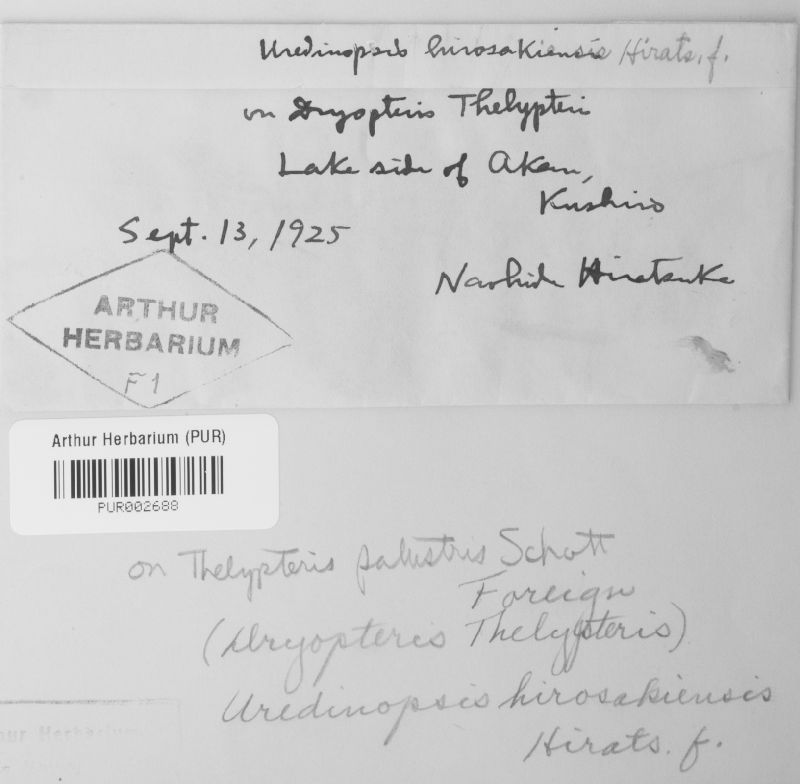 Uredinopsis hirosakiensis Hirats. f.
on Dryopteris Thelypteris
Lake side of Akan,
Kushiro
Sept. 13, 1925
Naohide Hiratsuka
ARTHUR
HERBARIUM
F1
Arthur Herbarium (PUR)
PUR002688
on Thelypteris palustris Schott
Foreign
(Dryopteris Thelypteris)
Uredinopsis hirosakiensis
Hirats. f.
Herbarium